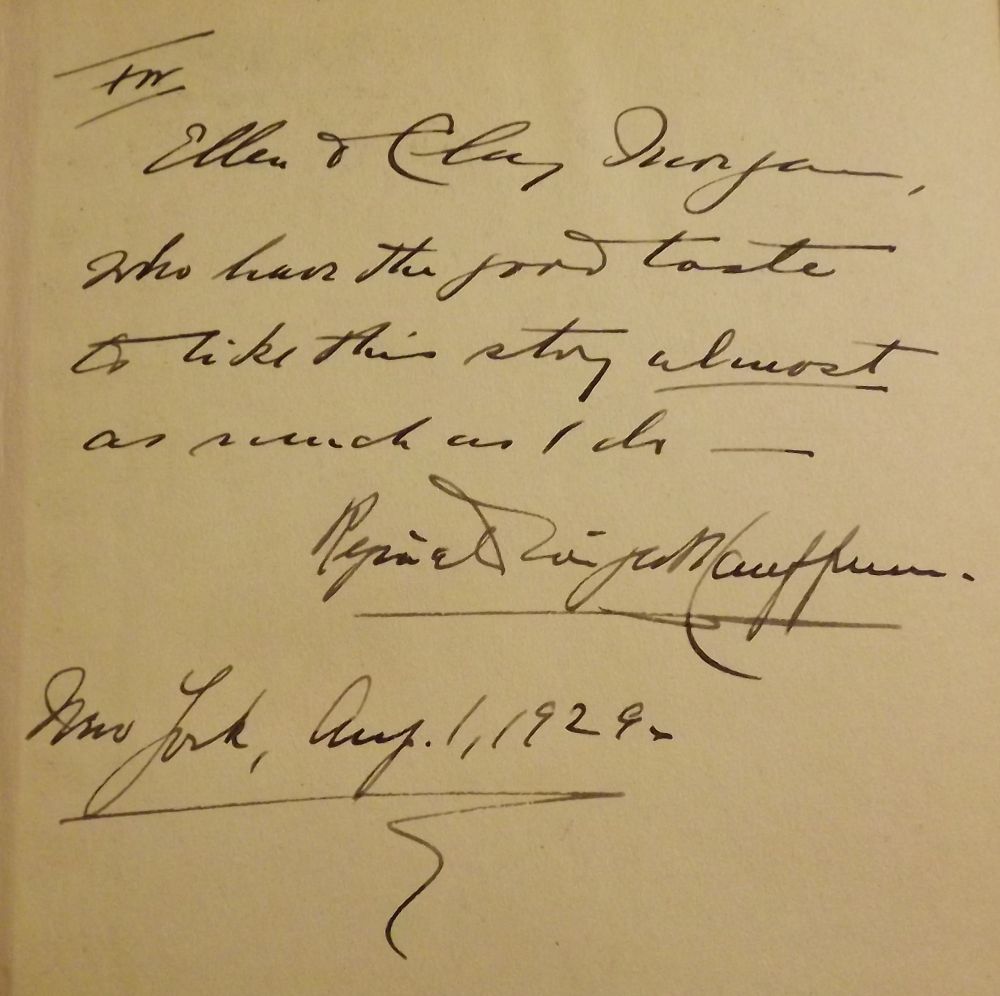 For
Ellen & Clay Morgan,
who have the good taste
to like this story almost
as much as I do —
Reginald Wright Kauffman.
New York, Aug. 1, 1929.